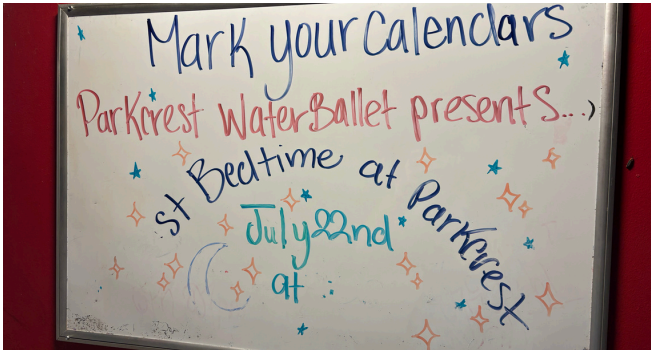 Mark your Calendars
Parkcrest WaterBallet presents...
st Bedtime at Parkcrest
July 22nd
at :